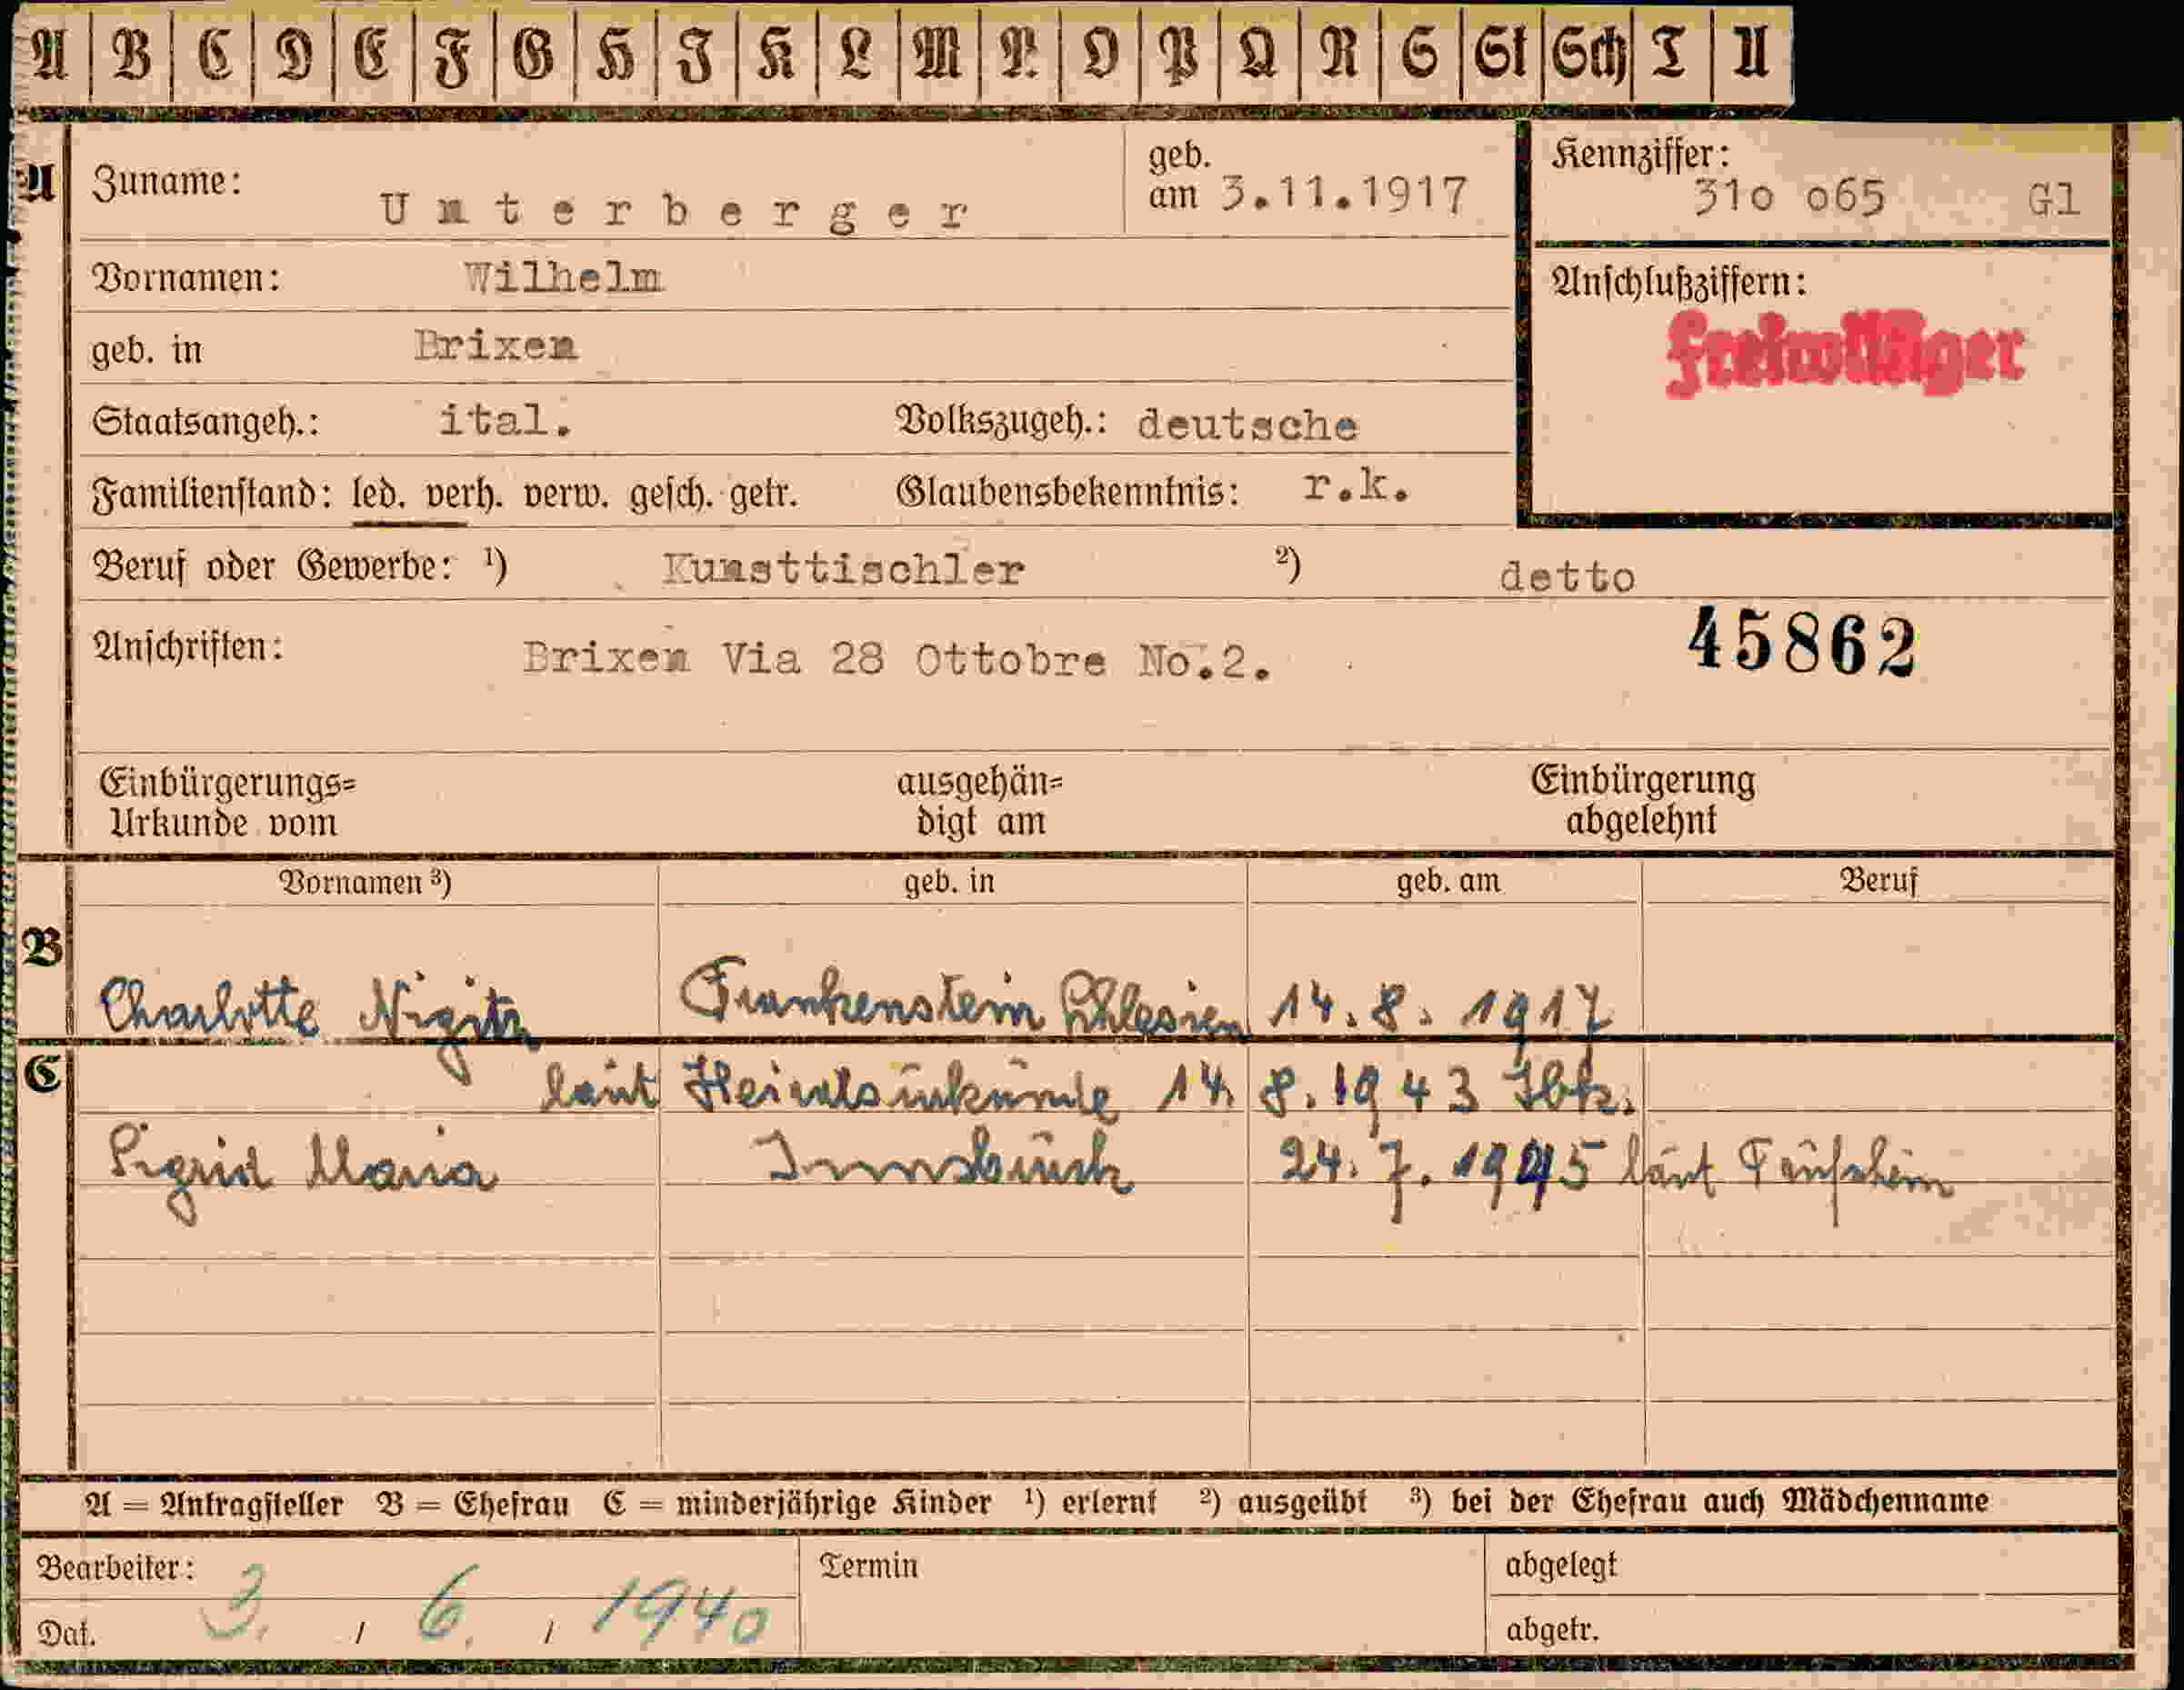 A B C D E F G H J K L M N O P Q R S St Sch T U
A Zuname: Unterberger geb. am 3.11.1917 Kennziffer: 31o o65 Gl
Vornamen: Wilhelm Anschlußziffern:
freiwilliger
geb. in Brixen
Staatsangeh.: ital. Volkszugeh.: deutsche
Familienstand: led. verh. verw. gesch. getr. Glaubensbekenntnis: r.k.
Beruf oder Gewerbe: ¹) Kunsttischler ²) detto
45862
Anschriften: Brixen Via 28 Ottobre No.2.
Einbürgerungs= ausgehän= Einbürgerung
Urkunde vom digt am abgelehnt
Vornamen ³) geb. in geb. am Beruf
B
Charlotte Frankenstein Schlesien 14.8.1917
C
laut Heiratsurkunde 14.8.1943 Ibk.
Sigrid Maria Innsbruck 24.7.1945 laut Taufschein
A = Antragsteller B = Ehefrau C = minderjährige Kinder ¹) erlernt ²) ausgeübt ³) bei der Ehefrau auch Mädchenname
Bearbeiter: Termin abgelegt
Dat. 3. / 6. / 1940 abgetr.